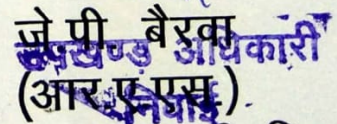 जे.पी. बैरवा
उपखण्ड अधिकारी
(आर.ए.एस.)